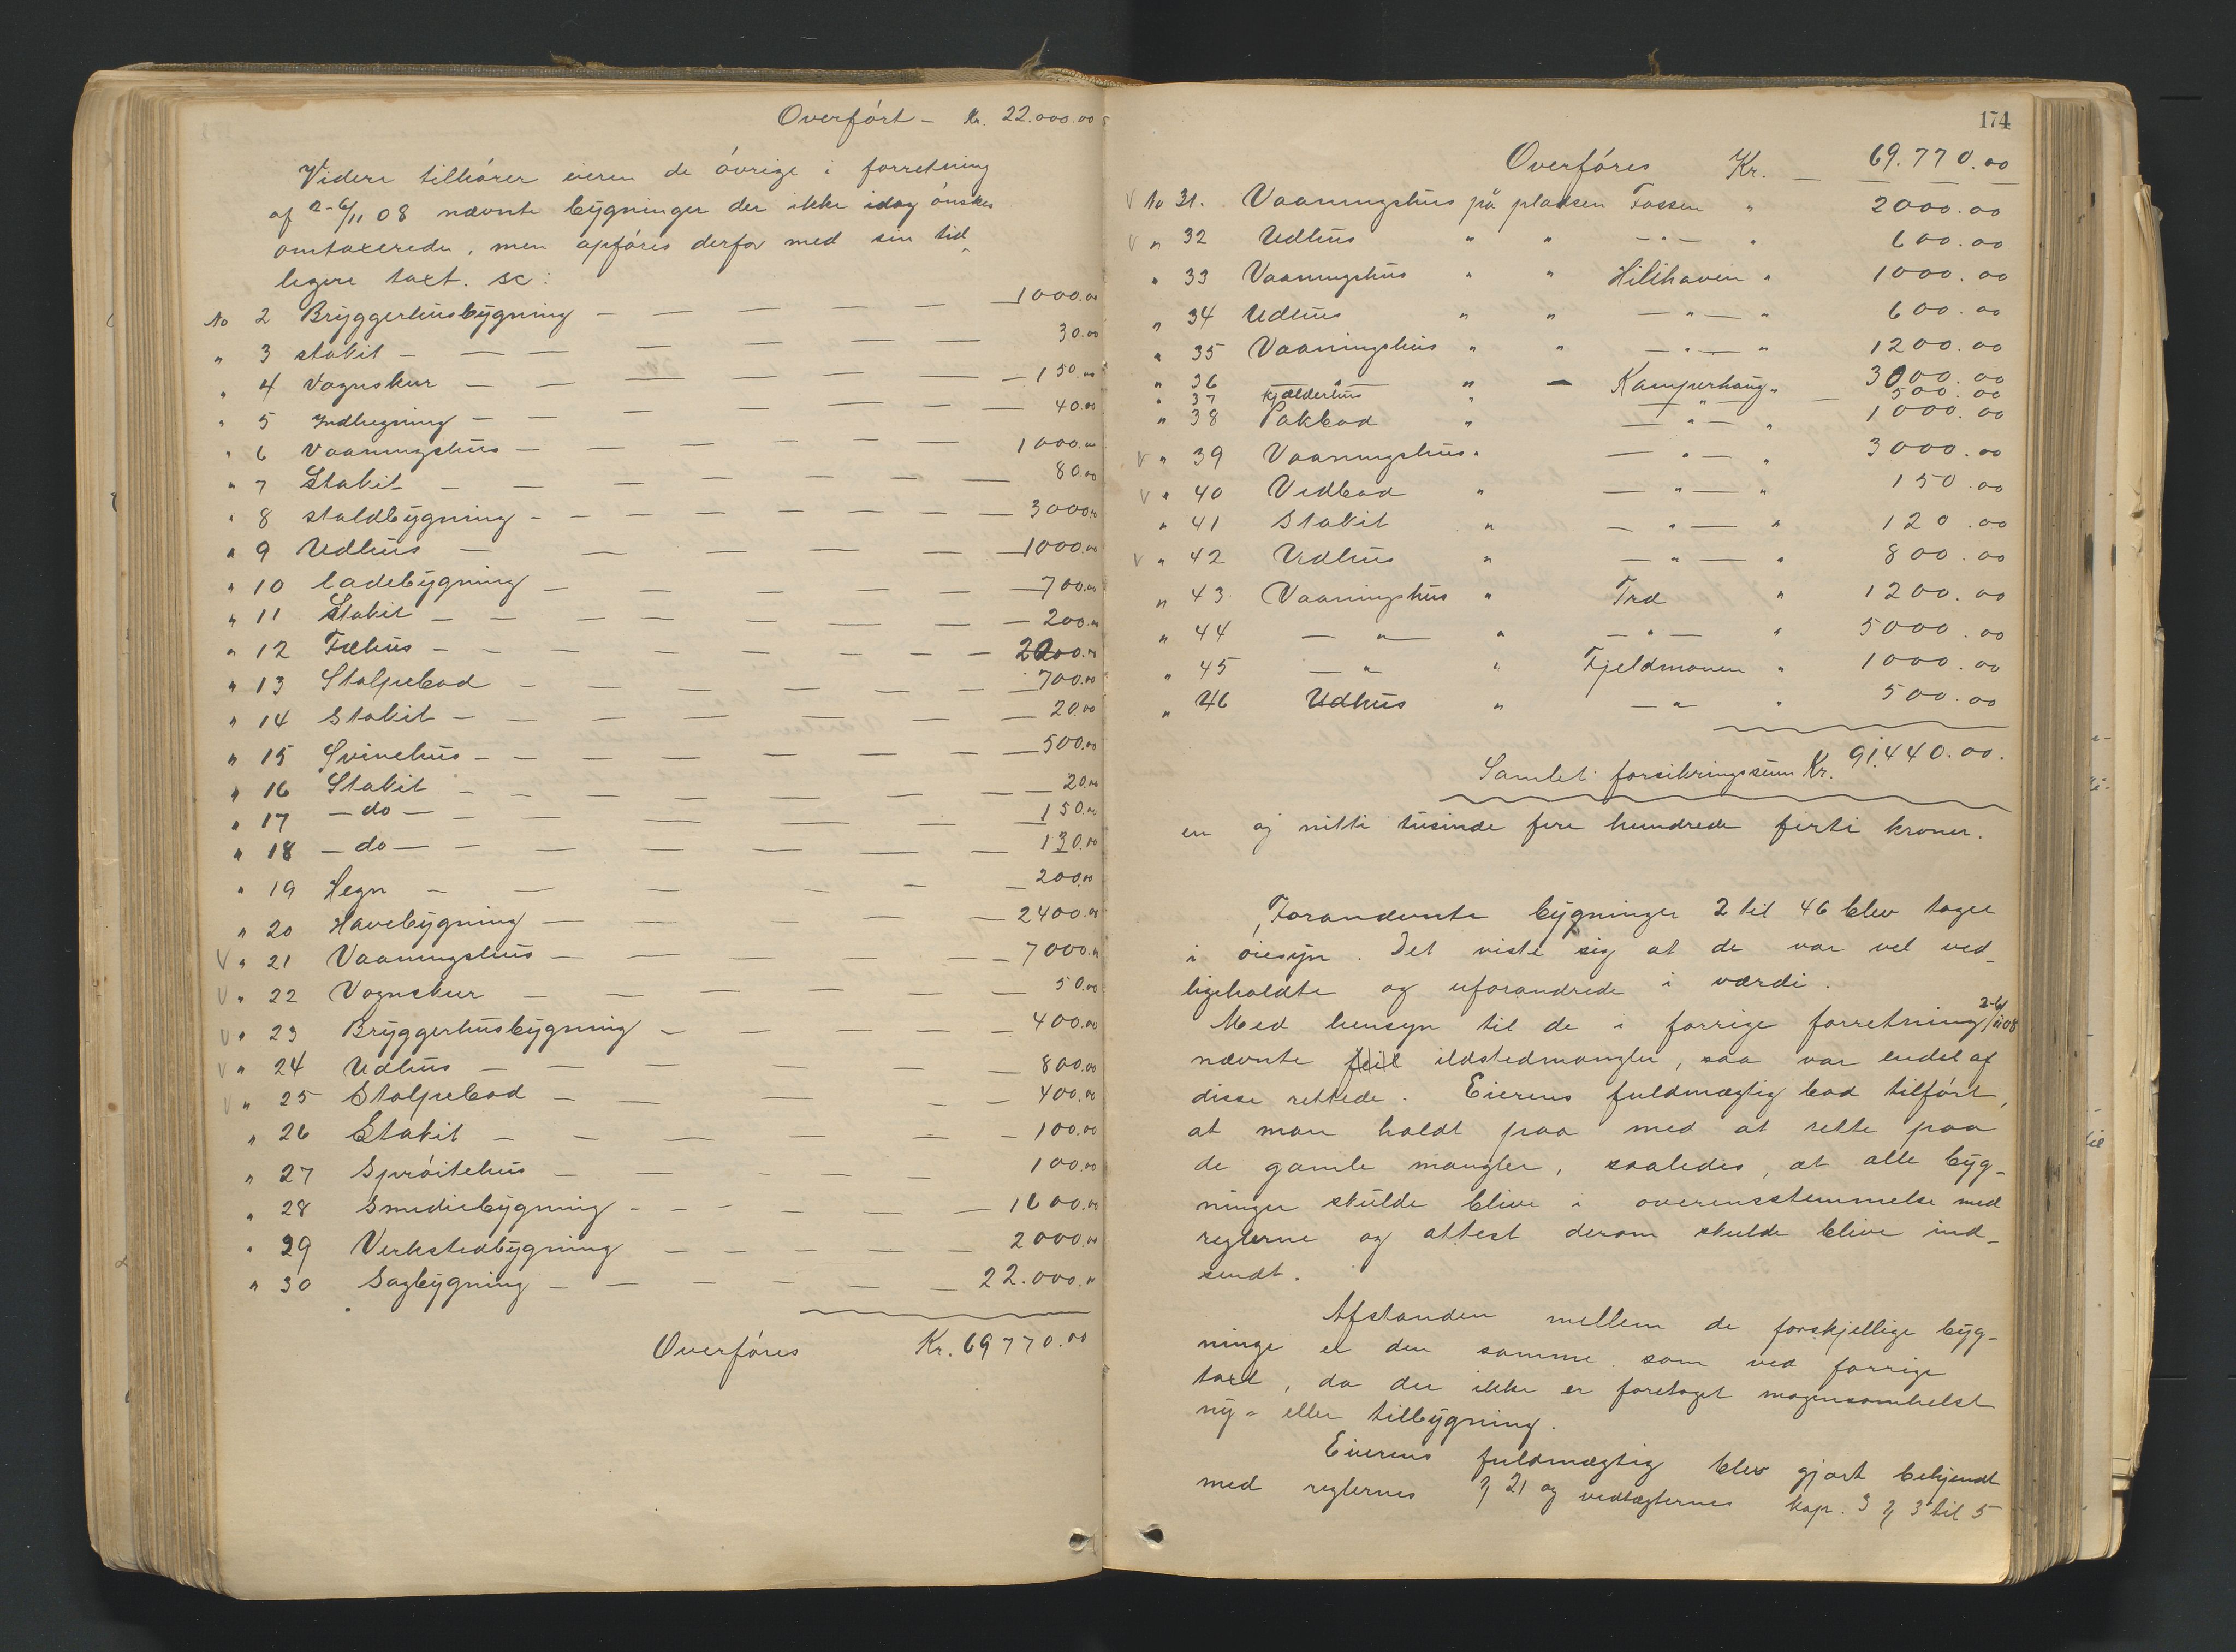 Overført – Kr. 22.000.00
Videre tilhører eieren de øvrige i forretning
af 2-6/11 08 nævnte bygninger der ikke idag ønskes
omtaxerede, men opføres derfor med sin tid-
ligere taxt. sc:
No 2 Bryggerhusbygning — — — — 1000.00
" 3 stakit — — — — 30.00
" 4 Vognskur — — — — 150.00
" 5 Indhegning — — — — 40.00
" 6 Vaaningshus — — — — 1000.00
" 7 Stakit — — — — 80.00
" 8 staldbygning — — — — 3000.00
" 9 Udhus — — — — 1000.00
" 10 ladebygning — — — — 700.00
" 11 Stakit — — — — 200.00
" 12 Fæhus — — — — 2200.00
" 13 Stolpebod — — — — 700.00
" 14 Stakit — — — — 20.00
" 15 Svinehus — — — — 500.00
" 16 Stakit — — — — 20.00
" 17 – do – — — — — 150.00
" 18 – do – — — — — 130.00
" 19 Hegn — — — — 200.00
" 20 Havebygning — — — — 2400.00
V " 21 Vaaningshus — — — — 7000.00
V " 22 Vognskur — — — — 50.00
V " 23 Bryggerhusbygning — — — — 400.00
V " 24 Udhus — — — — 800.00
V " 25 Stolpebod — — — — 400.00
" 26 Stakit — — — — 100.00
" 27 Sprøitehus — — — — 100.00
" 28 Smediebygning — — — — 1600.00
" 29 Verkstedbygning — — — — 2000.00
" 30 Sagbygning — — — — 22.000.00
Overføres Kr. 69770.00
174
Overføres Kr. — 69.770.00
V No 31. Vaaningshus på pladsen Fossen " 2000.00
V " 32 Udhus " " — " — " 600.00
" 33 Vaaningshus " " Hilihaven " 1000.00
" 34 Udhus " " — " — " 600.00
" 35 Vaaningshus " " — " — " 1200.00
" 36 — " — " — Kamperhaug " 3000.00
" 37 kjælderhus " — " — 500.00
" 38 Pakbod " — " — " 1000.00
V " 39 Vaaningshus " — " — " 3000.00
V " 40 Vedbod " — " — " 150.00
" 41 Stakit " — " — " 120.00
V " 42 Udhus " — " — " 800.00
" 43 Vaaningshus " Trø " 1200.00
" 44 — " — " — " — " 5000.00
" 45 — " " Fjeldmoen " 1000.00
" 46 Udhus " — " " 500.00
Samlet forsikringssum Kr. 91.440.00.
en og nitti tusinde fire hundrede førti kroner.
Forannevnte bygninger 2 til 46 blev taget
i øiesyn. Det viste sig at de var vel ved-
ligeholdte og uforandrede i værdi.
Med hensyn til de i forrige forretning 2-6/11 08
nævnte feil ildstedmangler, saa var endel af
disse rettede. Eierens fuldmægtig bad tilført,
at man holdt paa med at rette paa
de gamle mangler, saaledes, at alle byg-
ninger skulde blive i overensstemmelse med
reglerne og attest derom skulde blive ind-
sendt.
Afstanden mellem de forskjellige byg-
ninge er den samme som ved forrige
taxt, da der ikke er foretaget nogensomhelst
ny- eller tilbygning.
Eierens fuldmægtig blev gjort bekjendt
med reglernes § 21 og vedtægternes kap. 3 § 3 til 5